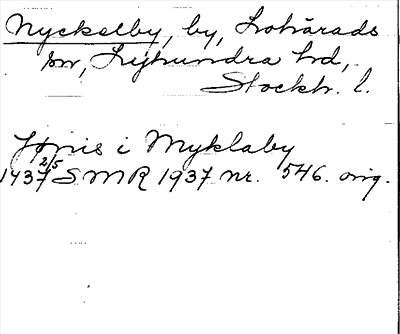 Nyckelby, by, Lohärads
sn, Lyhundra hd,
Stockh. l.
Jönis i Myklaby
1437 2/5 SMR 1937 nr. 546. orig.